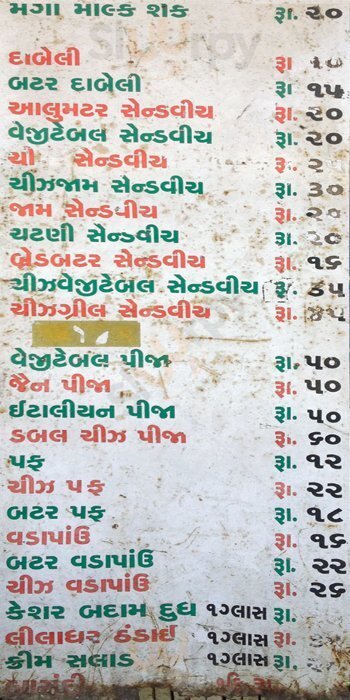 મગા માલ્ક શેક રૂા. ૨૦
દાબેલી રૂા ૧૦
બટર દાબેલી રૂા ૧૫
આલુમટર સેન્ડવીચ રૂા. ૨૦
વેજીટેબલ સેન્ડવીચ રૂા. ૨૦
સેન્ડવીચ રૂા.
ચીઝજામ સેન્ડવીચ રૂા. ૩૦
જામ સેન્ડવીચ રૂા. ૨૦
ચટણી સેન્ડવીચ રૂા. ૨૦
બ્રેડબટર સેન્ડવીચ રૂા. ૧૬
ચીઝવેજીટેબલ સેન્ડવીચ રૂ. ૩૫
ચીઝગ્રીલ સેન્ડવીચ રૂા.
વેજીટેબલ પીજા રૂા. ૫૦
જૈન પીજા રૂા. ૫૦
ઈટાલીયન પીજા રૂા. ૫૦
ડબલ ચીઝ પીજા રૂા. ૬૦
પફ રૂા. ૧૨
ચીઝ પફ રૂા. ૨૨
બટર પફ રૂા. ૧૮
વડાપાંઉ રૂા. ૧૬
બટર વડાપાંઉ રૂા. ૨૨
ચીઝ વડાપાંઉ રૂા. ૨૬
કેશર બદામ દુધ ૧ગ્લાસ રૂા.
લીલાધર ઠંડાઈ ૧ગ્લાસ રૂા.
ક્રીમ સલાડ ૧ગ્લાસ રૂા.